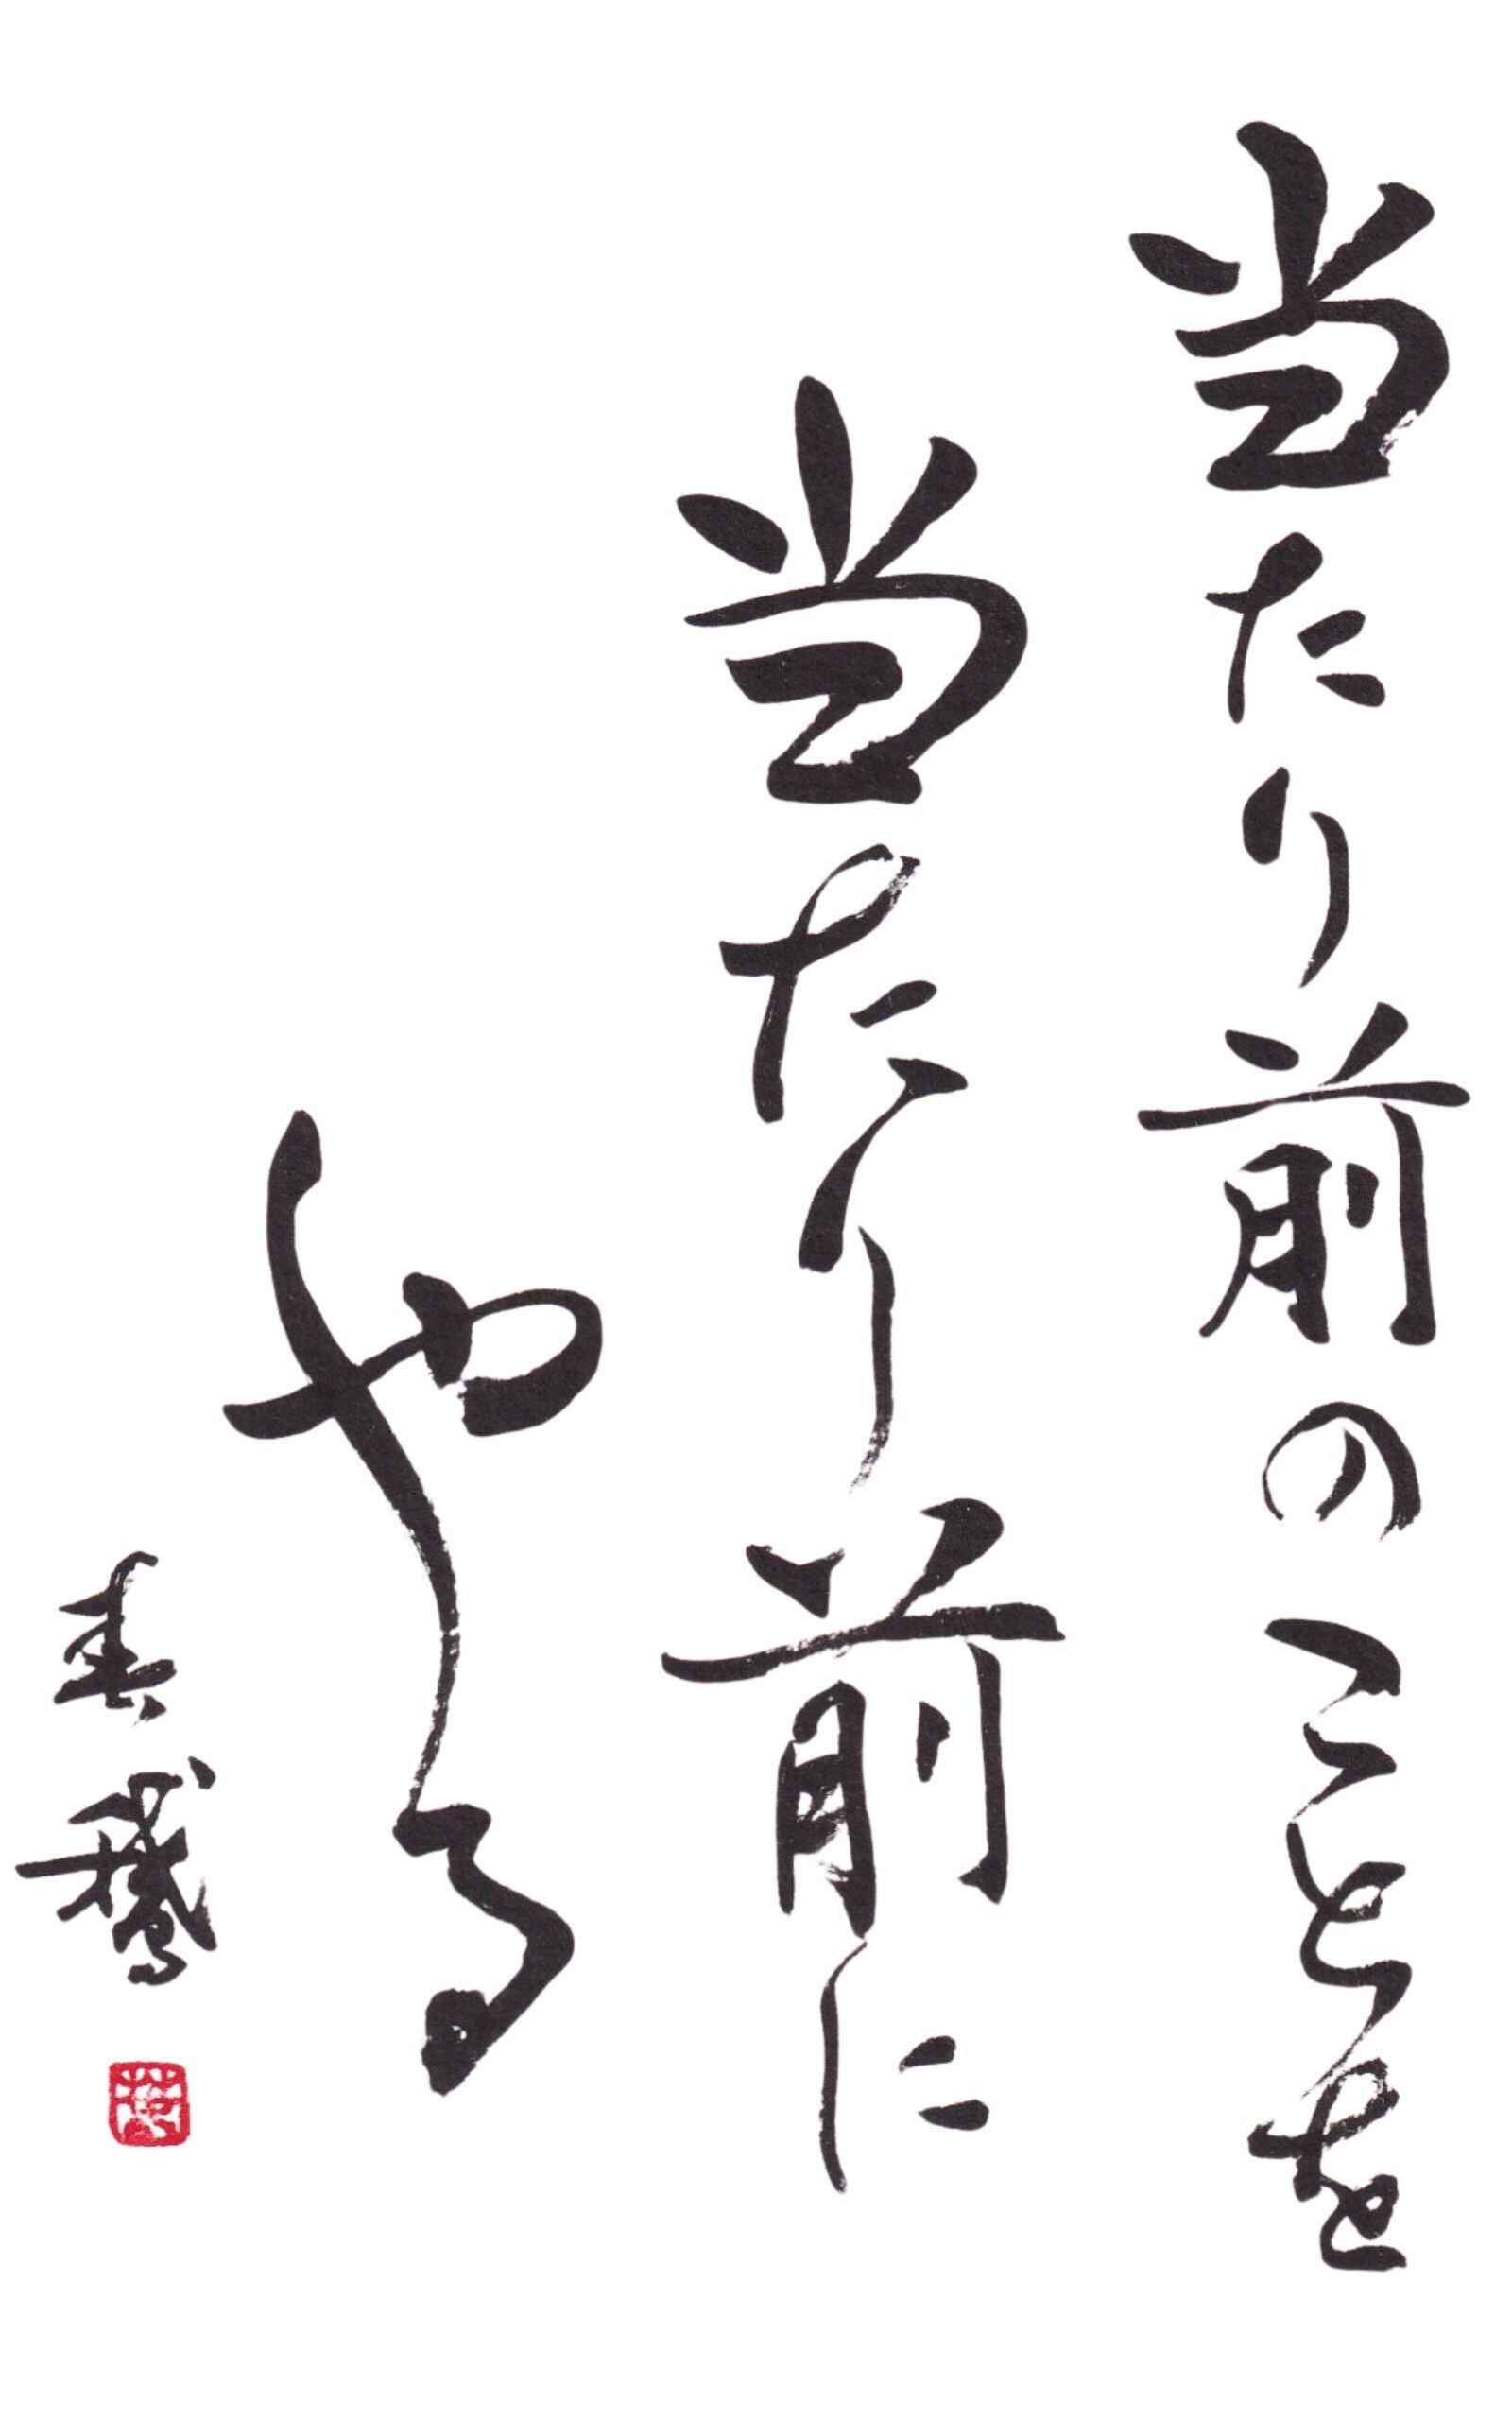 当たり前のことを
当たり前に
やる